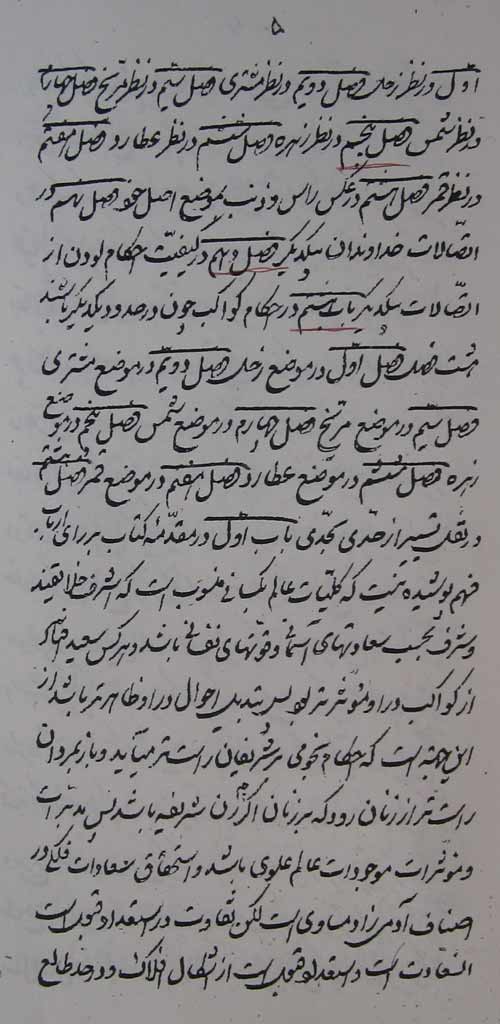 ۵
اول در نظر زحل فصل دویم در نظر مشتری فصل سیم در نظر مریخ فصل چهارم
در نظر شمس فصل پنجم در نظر زهره فصل ششم در نظر عطارد فصل هفتم
در نظر قمر فصل هشتم در عکس راس و ذنب بموضع اصل خود فصل نهم در
اتصالات خداوندان بیکدیگر فصل دهم در کیفیت احکام بودن از
اتصالات بیکدیگر باب هشتم در احکام کواکب چون در حدود یکدیگر باشند
هشت فصل فصل اول در موضع زحل فصل دویم در موضع مشتری
فصل سیم در موضع مریخ فصل چهارم در موضع شمس فصل پنجم در موضع
زهره فصل ششم در موضع عطارد فصل هفتم در موضع قمر فصل هشتم
در نقل تسییر از حدی بحدی باب اول در مقدمه کتاب بر رای ارباب
فهم پوشیده نیست که کلیات عالم بکسانی منسوب است که اشرف خلایقند
و شرف بحسب سعادتهای آسمانی و قوتهای نفسانی باشد و هر کس سعید
از کواکب در او مؤثرتر بود پس تبدیل احوال در او ظاهرتر باشد از
این جهة است که احکام نجومی بر شریفان راست تر میآید و باز بمردان
راست تر از زنان رود که بر زنان اگر زن شریفه باشد پس مدبرات
و موثرات موجودات عالم علوی باشد و استحقاق سعادات فلکی در
اصناف آدمی زاد مساوی است لکن تفاوت در استعداد قبول است
التفاوت است و استعداد قبول است از اشکال افلاک و درجه طالع